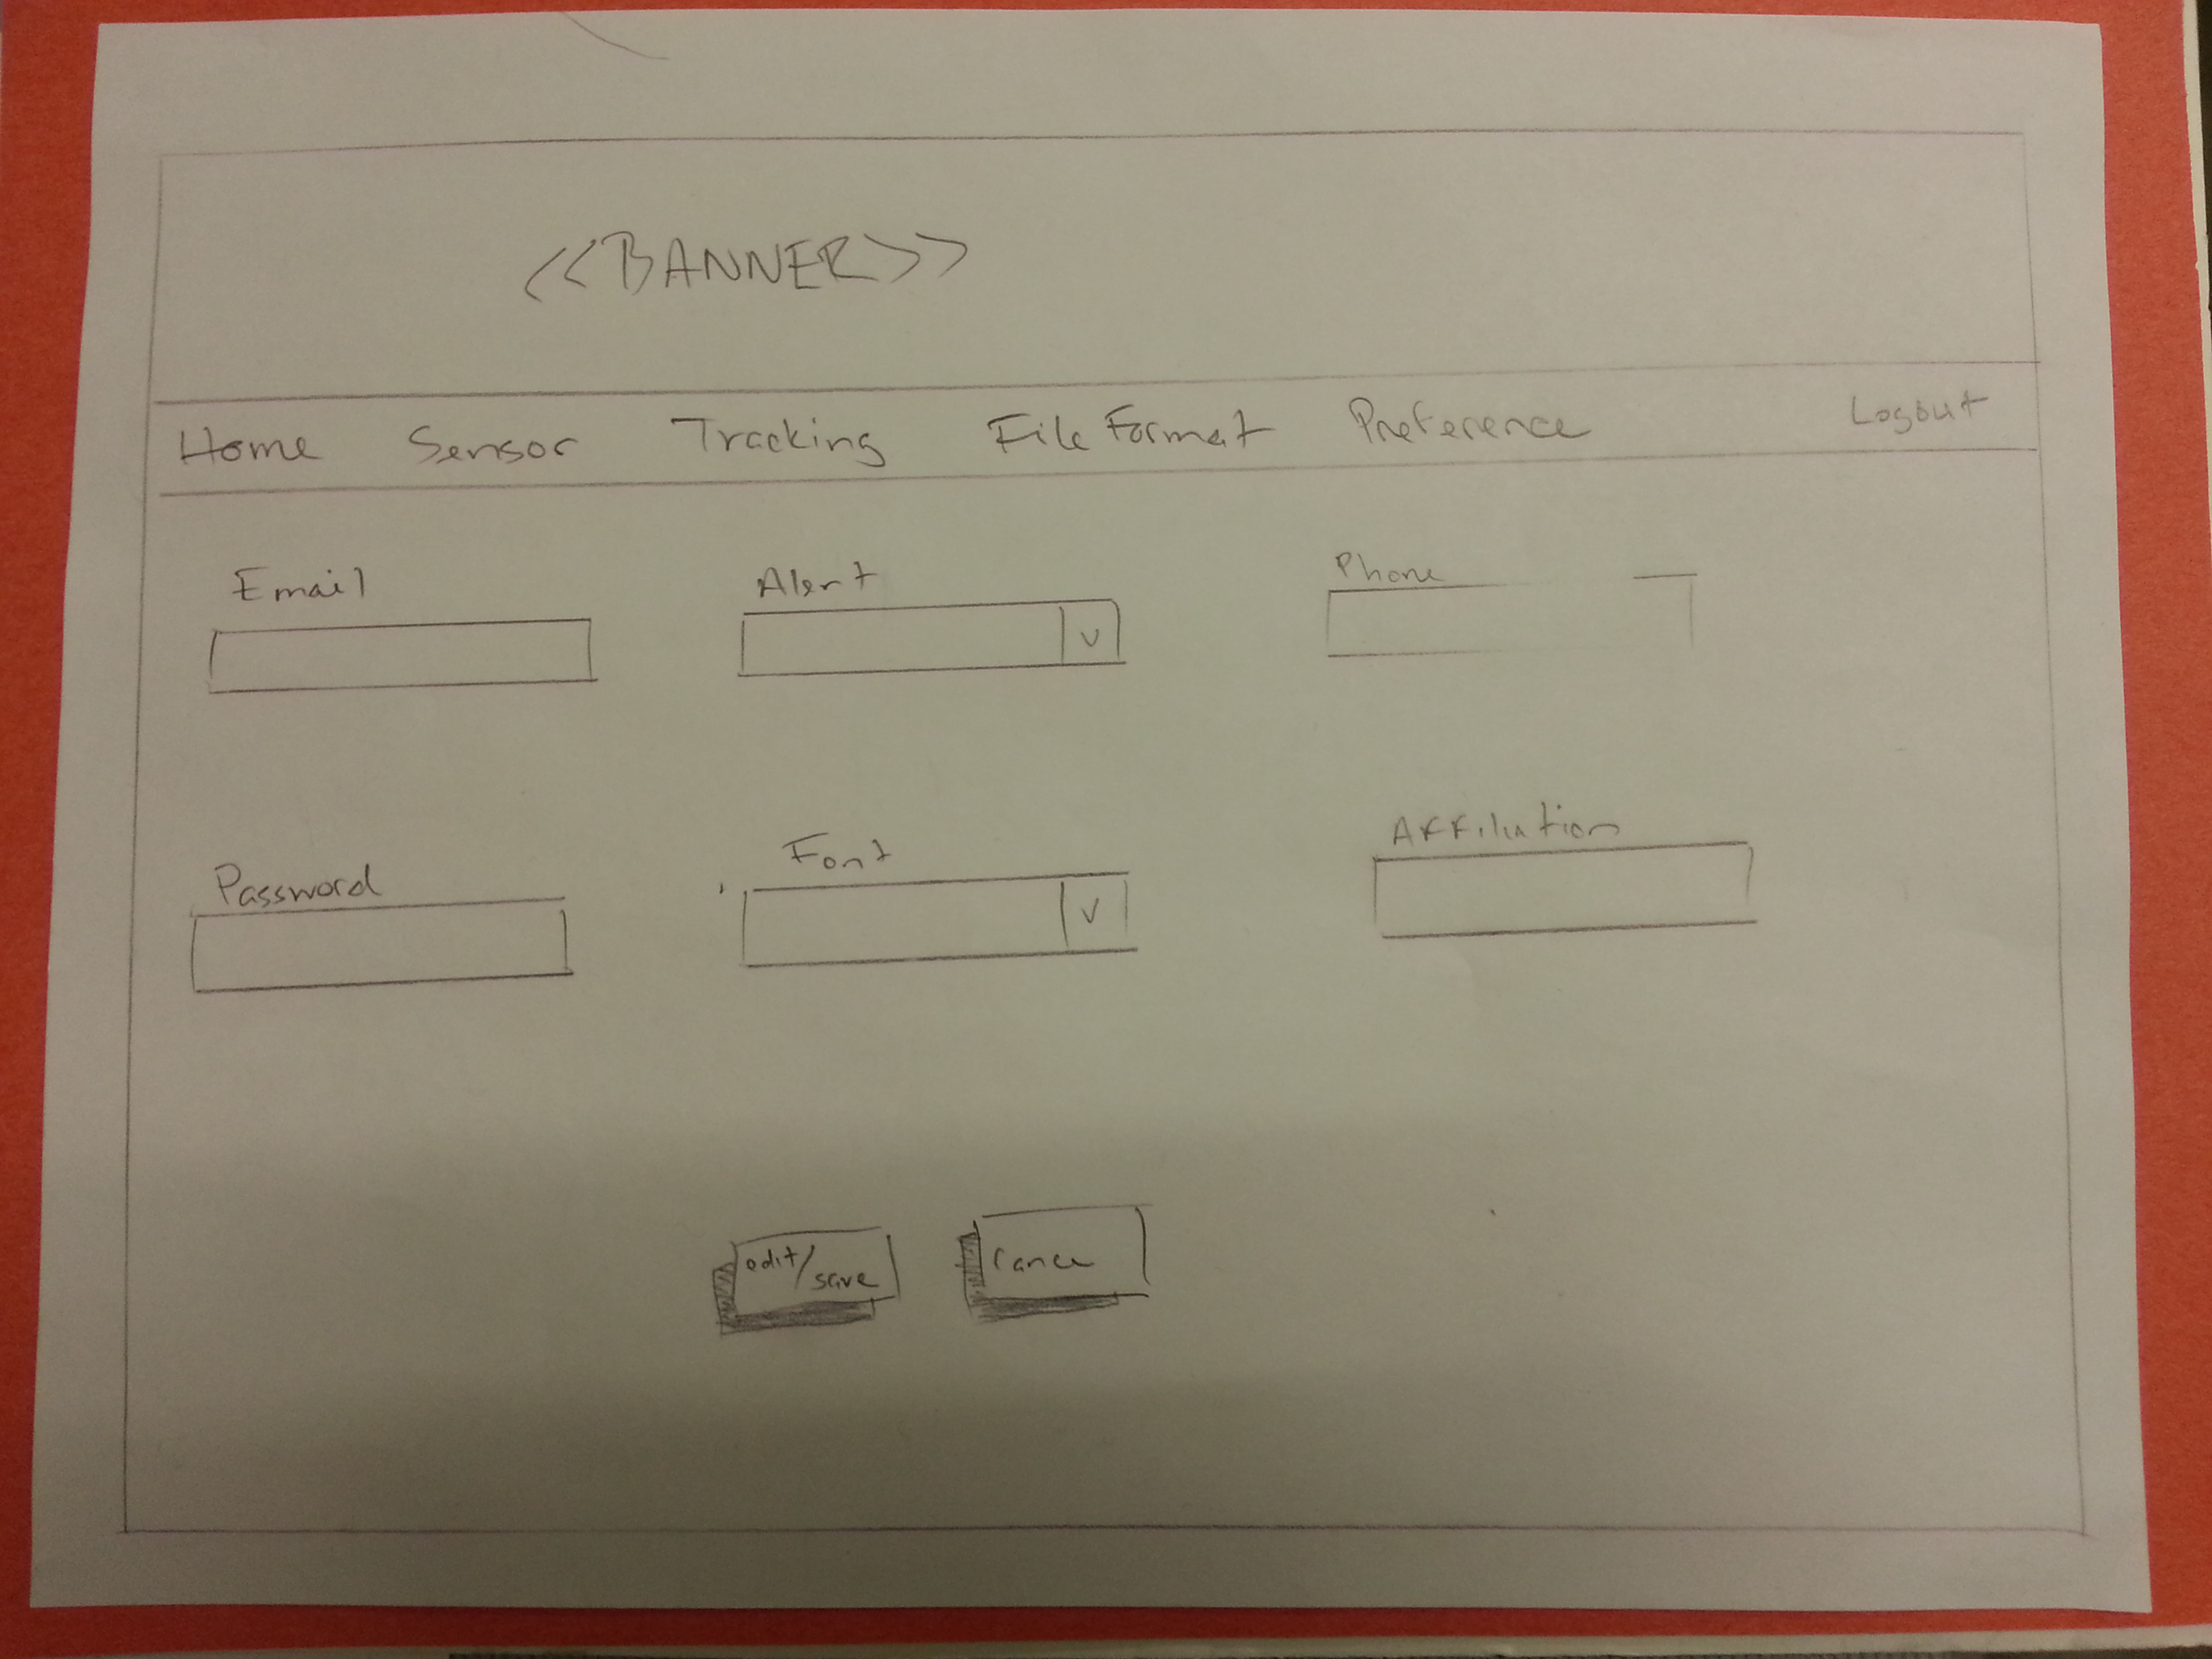 <<BANNER>>
Home Sensor Tracking File Format Preference Logout
Email Alert Phone
v
Password Font Affiliation
v
edit/save Cance